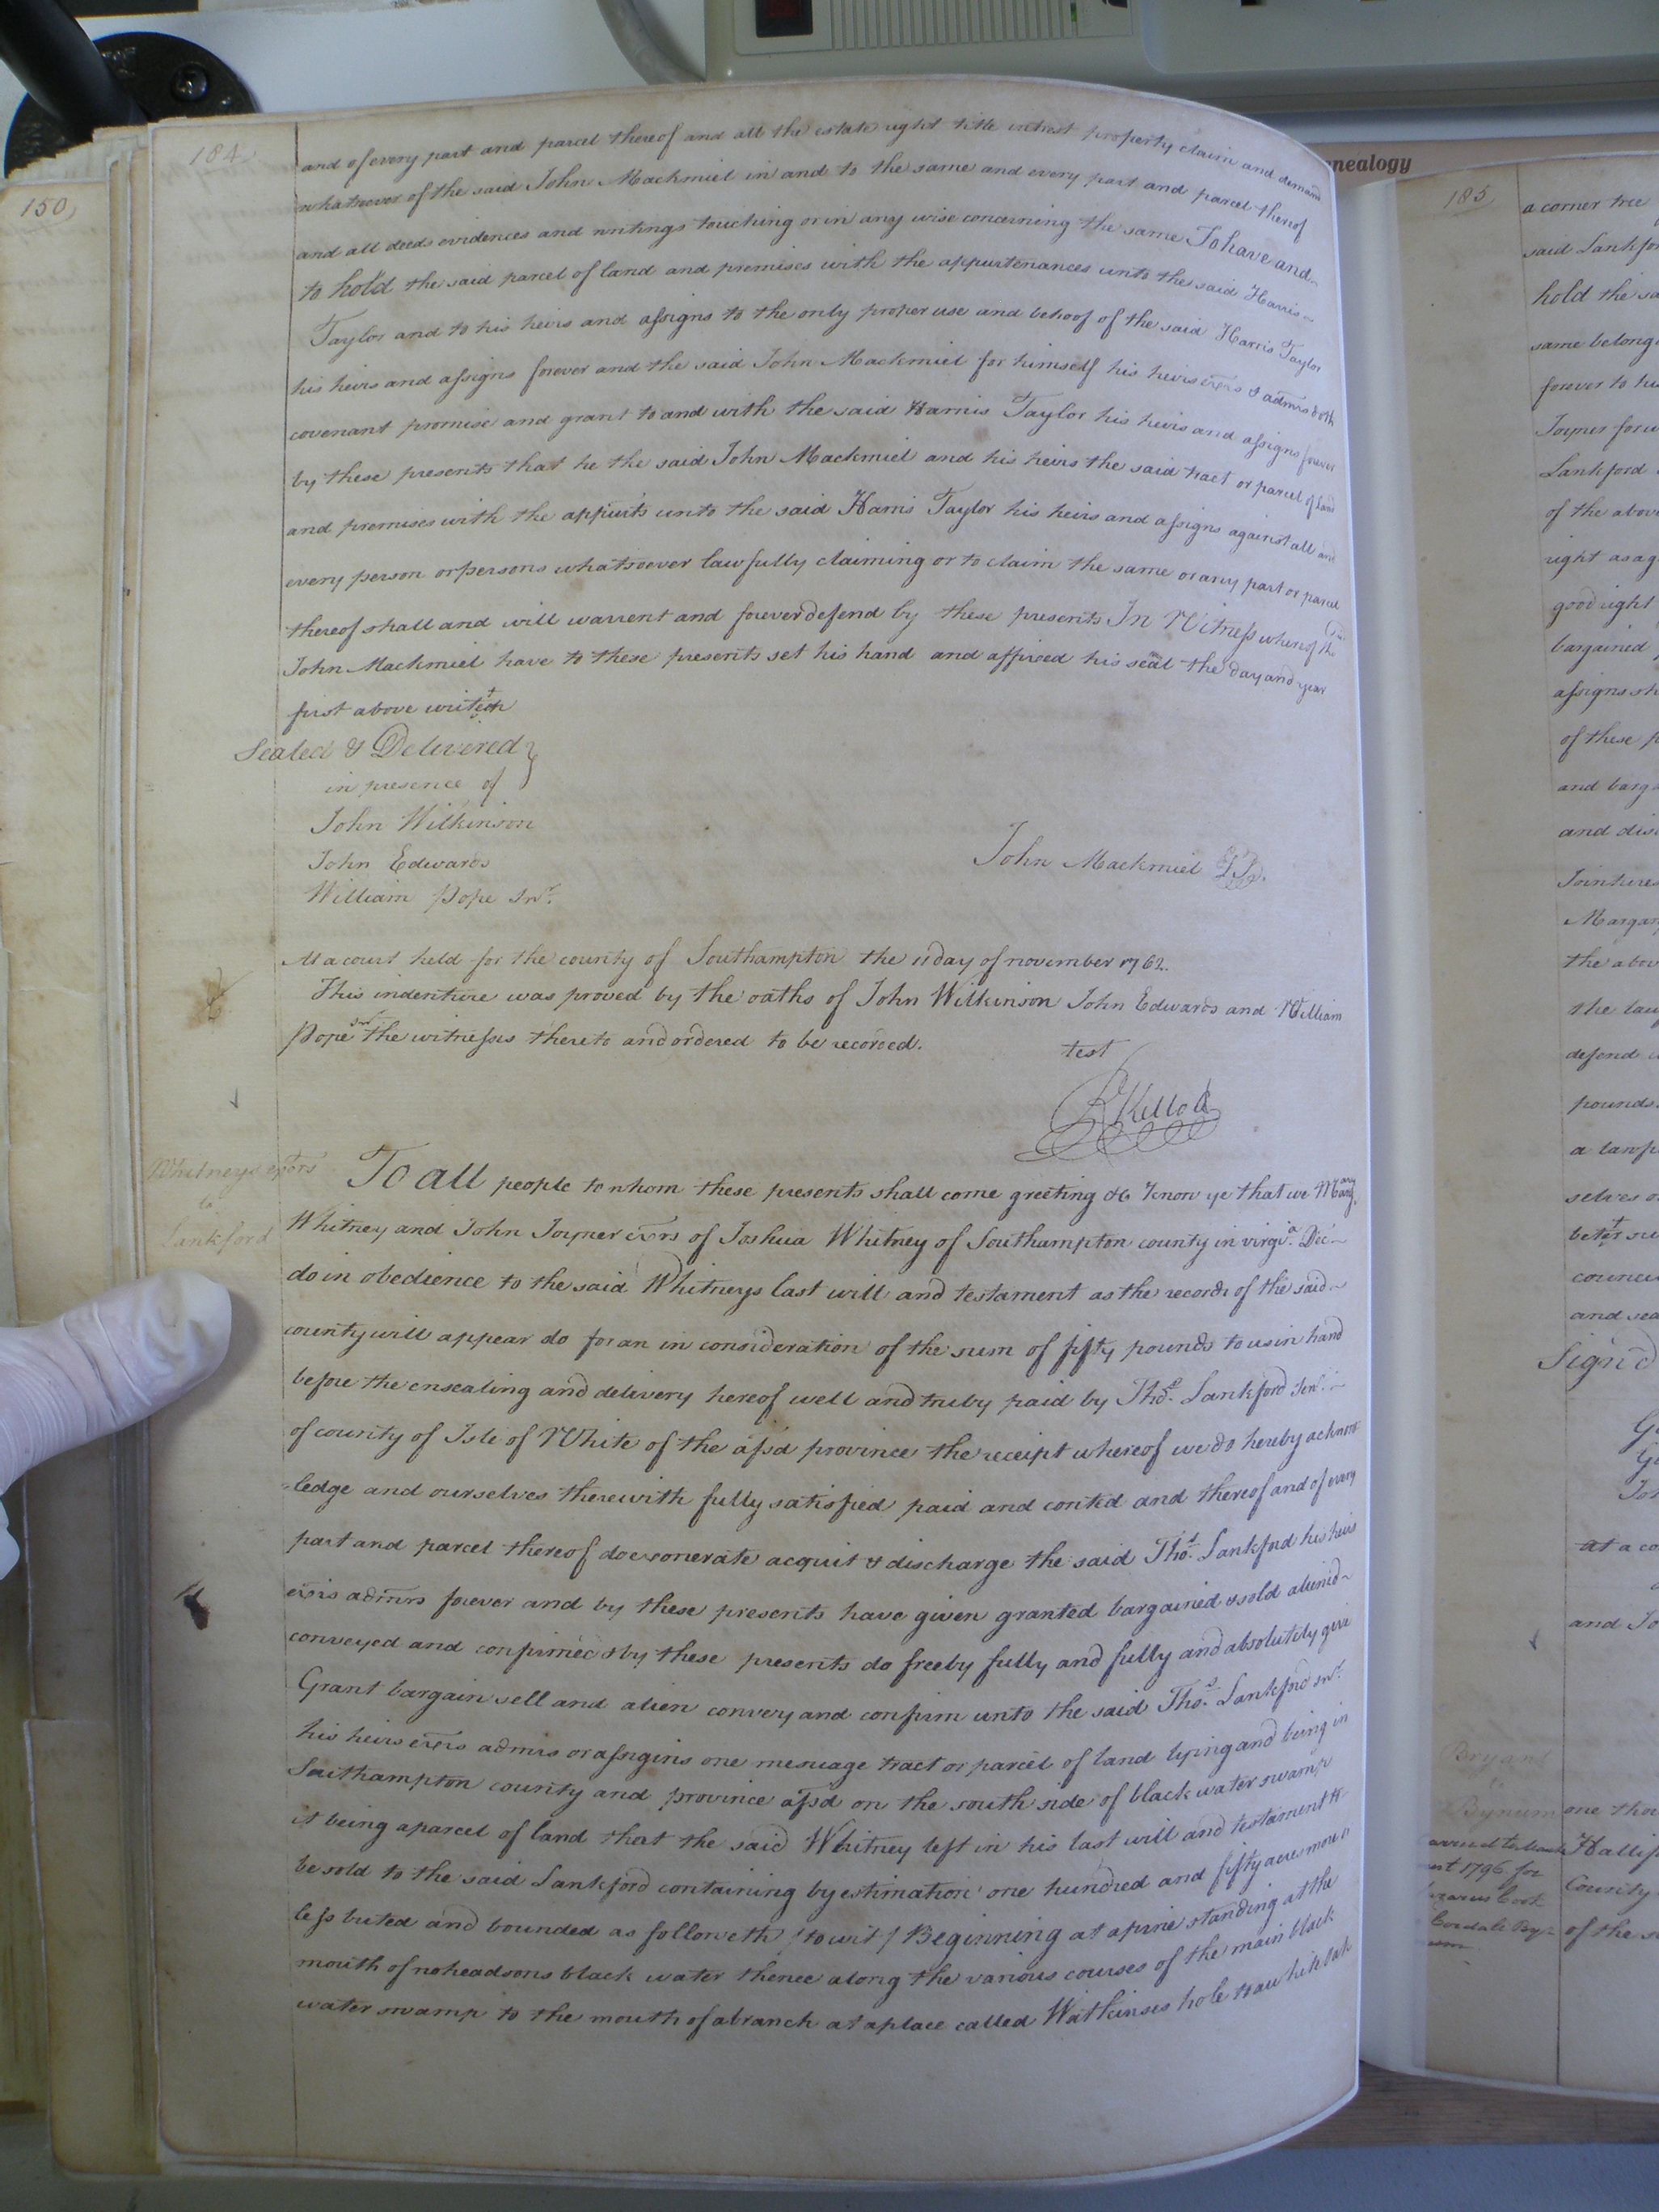 150
184
and of every part and parcel thereof and all the estate right title intrest property claim and demand
whatsoever of the said John Mackmiel in and to the same and every part and parcel thereof
and all deeds evidences and writings touching or in any wise concerning the same To have and
to hold the said parcel of land and premises with the appurtenances unto the said Harris
Taylor and to his heirs and assigns to the only proper use and behoof of the said Harris Taylor
his heirs and assigns forever and the said John Mackmiel for himself his heirs exrs & admrs doth
covenant promise and grant to and with the said Harris Taylor his heirs and assigns forever
by these presents that he the said John Mackmiel and his heirs the said tract or parcel of land
and premises with the appurts unto the said Harris Taylor his heirs and assigns against all and
every person or persons whatsoever lawfully claiming or to claim the same or any part or parcel
thereof shall and will warrent and forever defend by these presents In Witness whereof the
John Mackmiel have to these presents set his hand and affixed his seal the day and year
first above written
Sealed & Delivered
in presence of
John Wilkinson
John Edwards
William Pope Snr.
John Mackmiel LS.
At a court held for the county of Southampton the 11 day of november 1762.
This indenture was proved by the oaths of John Wilkinson John Edwards and William
Pope snr the witnesses thereto and ordered to be recorded.
test
R Kello
Whitneys exors
to
Lankford
To all people to whom these presents shall come greeting &c Know ye that we Mary
Whitney and John Joyner exrs of Joshua Whitney of Southampton county in virgia. Dec
do in obedience to the said Whitneys last will and testament as the records of the said
county will appear do for an in consideration of the sum of fifty pounds to us in hand
before the ensealing and delivery hereof well and truly paid by Thos. Lankford Senr.
of county of Isle of White of the afsd province the receipt whereof we do hereby acknow
-ledge and ourselves therewith fully satisfied paid and conted and thereof and of every
part and parcel thereof do exonerate acquit & discharge the said Thos. Lankford his heirs
exrs admrs forever and by these presents have given granted bargained & sold aliened
conveyed and confirmed & by these presents do freely fully and fully and absolutely give
Grant bargain sell and alien convey and confirm unto the said Thos. Lankford snr.
his heirs exrs admrs or assigins one mesuage tract or parcel of land lying and being in
Southampton county and province afsd on the south side of black water swamp
it being a parcel of land that the said Whitney left in his last will and testament to
be sold to the said Lankford containing by estimation one hundred and fifty acres more or
less buted and bounded as followeth / to wit / Beginning at a pine standing at the
mouth of noheadsons black water thence along the various courses of the main black
water swamp to the mouth of a branch at a place called Watkinses hole to a white oak
nealogy
185
a corner tree
said Lankfor
hold the sa
same belong
forever to hi
Joyner for
Lankford
of the abov
right as ag
good right
bargained
assigns sh
of these p
and barga
and dis
Jointures
Margar
the abov
the law
defend
pounds
a lawf
selves o
better su
council
and sea
Sign'd
at a co
and Jo
Bryant
to
Bynum
one thou
Hallif
County
of the s